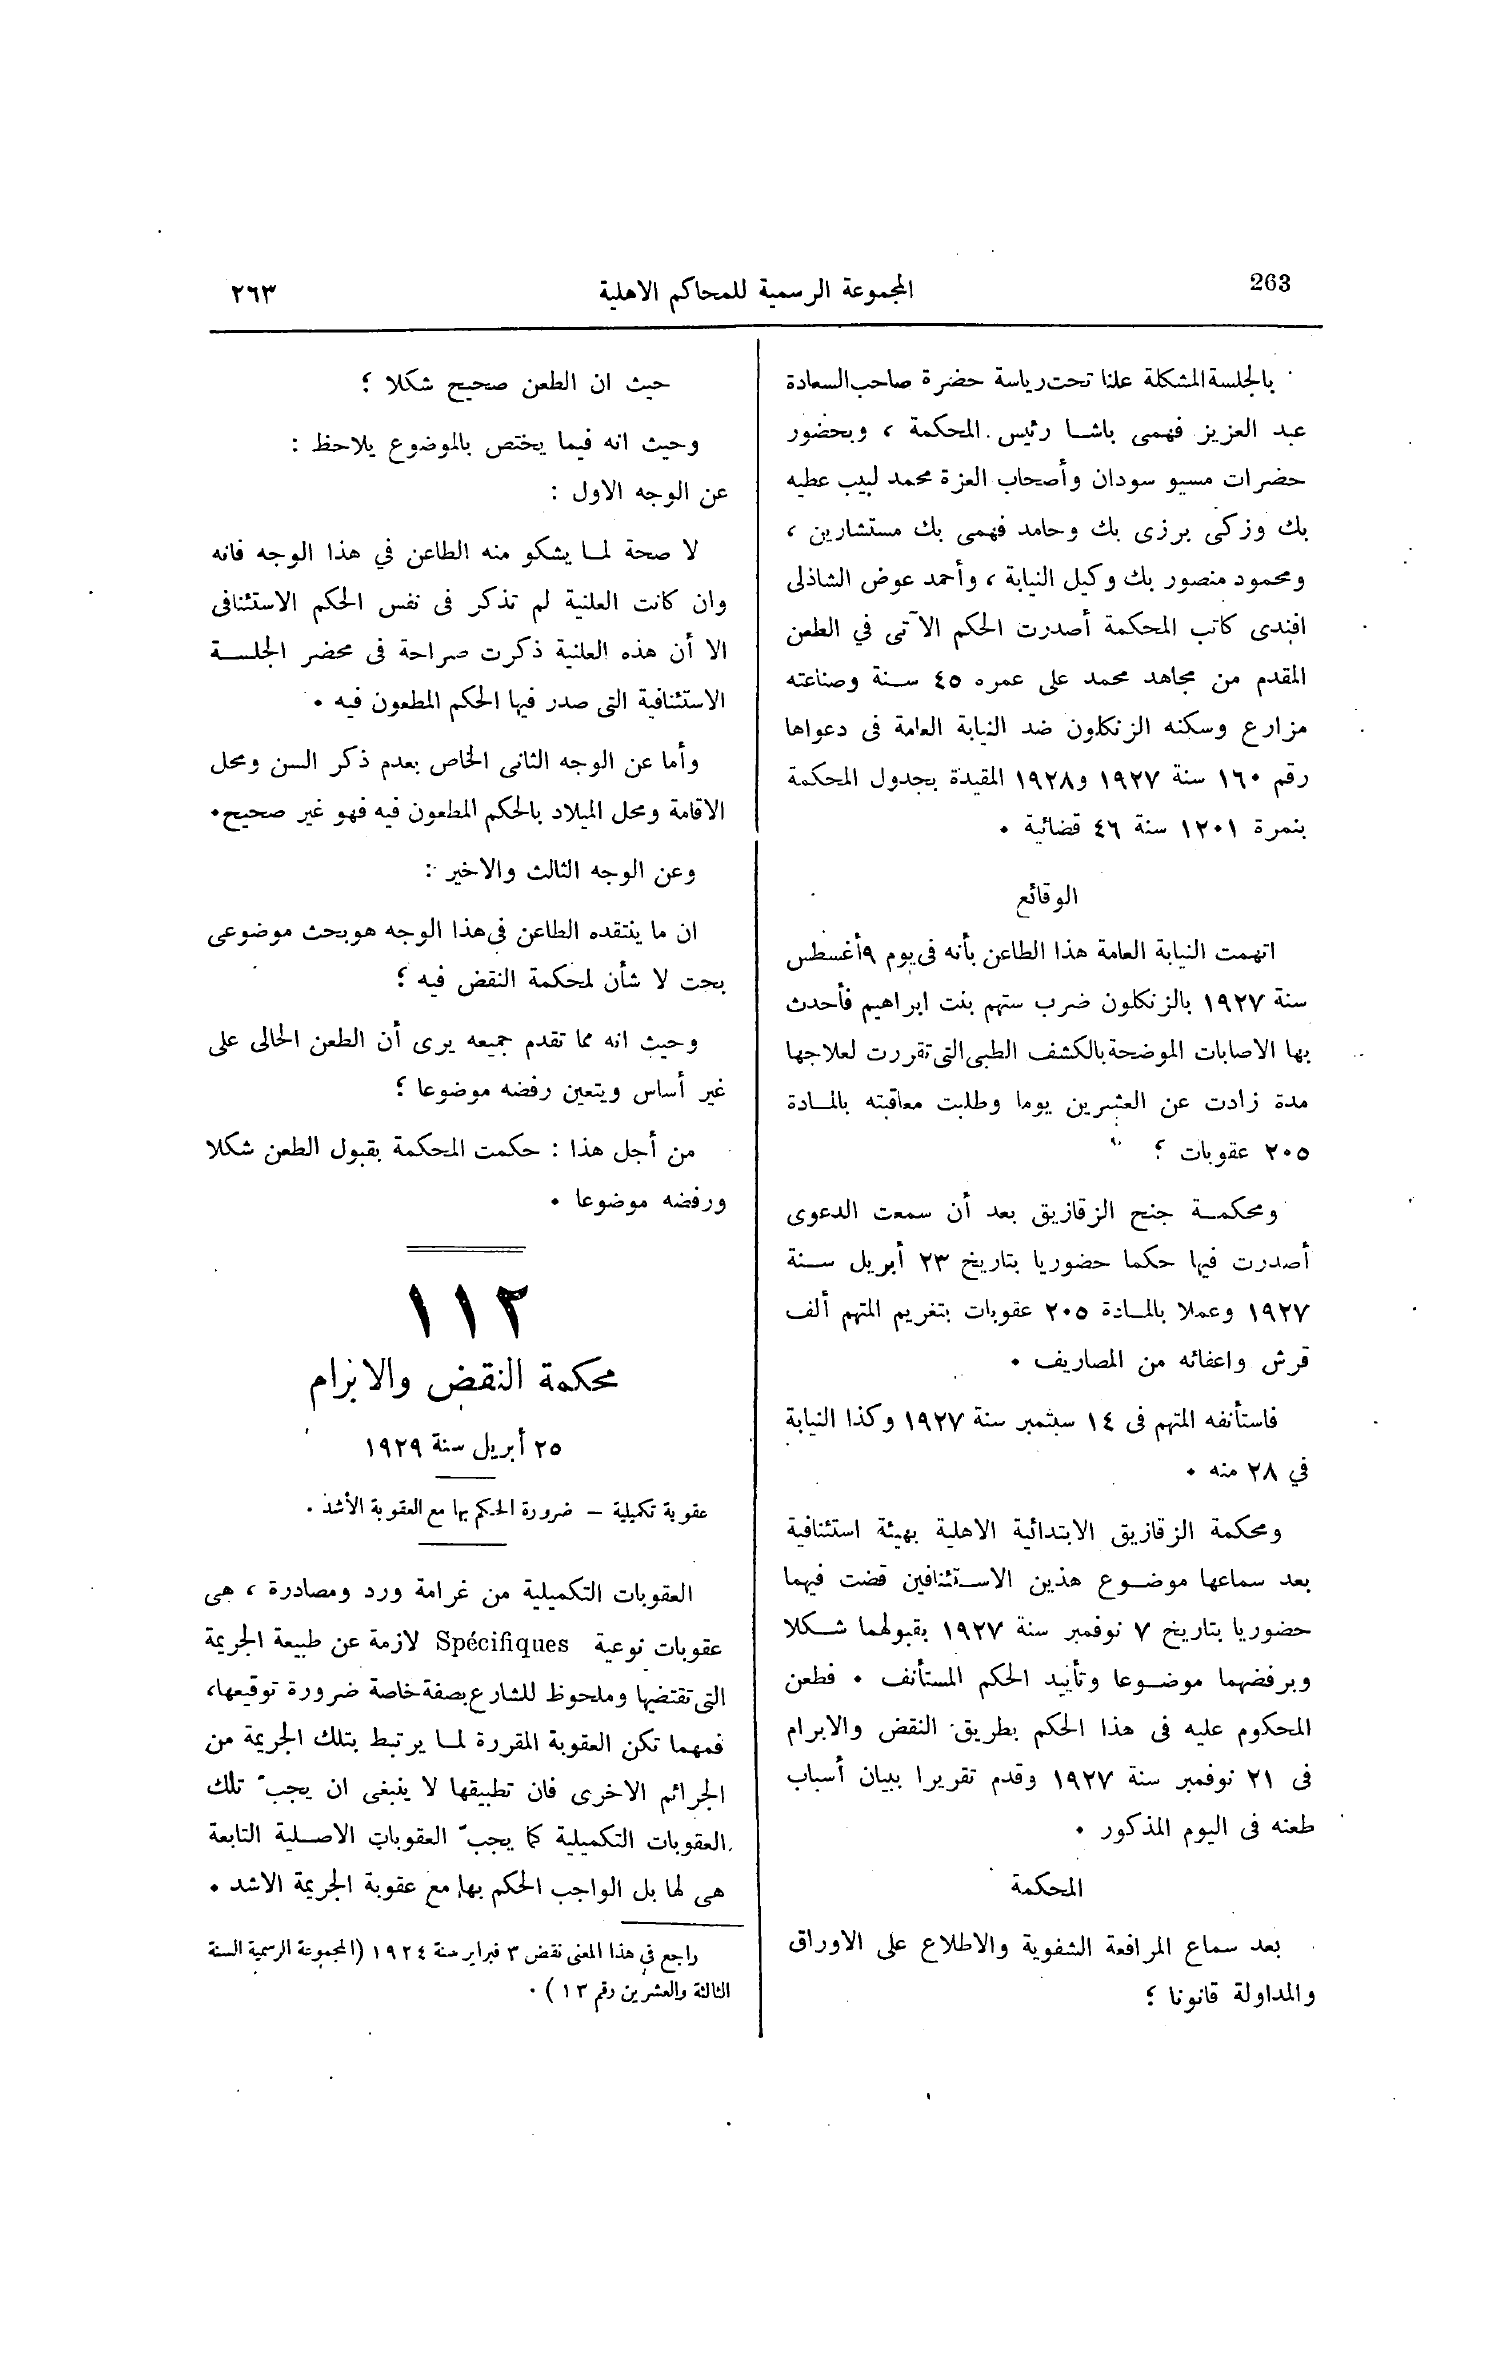 263
المجموعة الرسمية للمحاكم الاهلية
٢٦٣
بالجلسة المشكلة علنا تحت رياسة حضرة صاحب السعادة
عبد العزيز فهمى باشا رئيس المحكمة ، وبحضور
حضرات مسيو سودان وأصحاب العزة محمد لبيب عطيه
بك وزكى برزى بك وحامد فهمى بك مستشارين ،
ومحمود منصور بك وكيل النيابة ، وأحمد عوض الشاذلى
افندى كاتب المحكمة أصدرت الحكم الآتى في الطعن
المقدم من مجاهد محمد على عمره ٤٥ سنة وصناعته
مزارع وسكنه الزنكلون ضد النيابة العامة فى دعواها
رقم ١٦٠ سنة ١٩٢٧ و١٩٢٨ المقيدة بجدول المحكمة
بنمرة ١٢٠١ سنة ٤٦ قضائية .
الوقائع
اتهمت النيابة العامة هذا الطاعن بأنه فى يوم ٩ أغسطس
سنة ١٩٢٧ بالزنكلون ضرب ستهم بنت ابراهيم فأحدث
بها الاصابات الموضحة بالكشف الطبى التى تقررت لعلاجها
مدة زادت عن العشرين يوما وطلبت معاقبته بالمادة
٢٠٥ عقوبات ؛
ومحكمة جنح الزقازيق بعد أن سمعت الدعوى
أصدرت فيها حكما حضوريا بتاريخ ٢٣ أبريل سنة
١٩٢٧ وعملا بالمادة ٢٠٥ عقوبات بتغريم المتهم ألف
قرش واعفائه من المصاريف .
فاستأنفه المتهم فى ١٤ سبتمبر سنة ١٩٢٧ وكذا النيابة
في ٢٨ منه .
ومحكمة الزقازيق الابتدائية الاهلية بهيئة استئنافية
بعد سماعها موضوع هذين الاستئنافين قضت فيهما
حضوريا بتاريخ ٧ نوفمبر سنة ١٩٢٧ بقبولهما شكلا
وبرفضهما موضوعا وتأييد الحكم المستأنف . فطعن
المحكوم عليه فى هذا الحكم بطريق النقض والابرام
فى ٢١ نوفمبر سنة ١٩٢٧ وقدم تقريرا ببيان أسباب
طعنه فى اليوم المذكور .
المحكمة
بعد سماع المرافعة الشفوية والاطلاع على الاوراق
والمداولة قانونا ؛
حيث ان الطعن صحيح شكلا ؛
وحيث انه فيما يختص بالموضوع يلاحظ :
عن الوجه الاول :
لا صحة لما يشكو منه الطاعن في هذا الوجه فانه
وان كانت العلنية لم تذكر فى نفس الحكم الاستئنافى
الا أن هذه العلنية ذكرت صراحة فى محضر الجلسة
الاستئنافية التى صدر فيها الحكم المطعون فيه .
وأما عن الوجه الثانى الخاص بعدم ذكر السن ومحل
الاقامة ومحل الميلاد بالحكم المطعون فيه فهو غير صحيح .
وعن الوجه الثالث والاخير :
ان ما ينتقده الطاعن فى هذا الوجه هو بحث موضوعى
بحت لا شأن لمحكمة النقض فيه ؛
وحيث انه مما تقدم جميعه يرى أن الطعن الحالى على
غير أساس ويتعين رفضه موضوعا ؛
من أجل هذا : حكمت المحكمة بقبول الطعن شكلا
ورفضه موضوعا .
١١٢
محكمة النقض والابرام
٢٥ أبريل سنة ١٩٢٩
عقوبة تكميلية – ضرورة الحكم بها مع العقوبة الأشد .
العقوبات التكميلية من غرامة ورد ومصادرة ، هى
عقوبات نوعية Spécifiques لازمة عن طبيعة الجريمة
التى تقتضيها وملحوظ للشارع بصفة خاصة ضرورة توقيعها،
فمهما تكن العقوبة المقررة لما يرتبط بتلك الجريمة من
الجرائم الاخرى فان تطبيقها لا ينبغى ان يجبّ تلك
العقوبات التكميلية كما يجبّ العقوبات الاصلية التابعة
هى لها بل الواجب الحكم بها مع عقوبة الجريمة الاشد .
راجع في هذا المعنى نقض ٣ فبراير سنة ١٩٢٤ (المجموعة الرسمية السنة
الثالثة والعشرين رقم ١٣) .